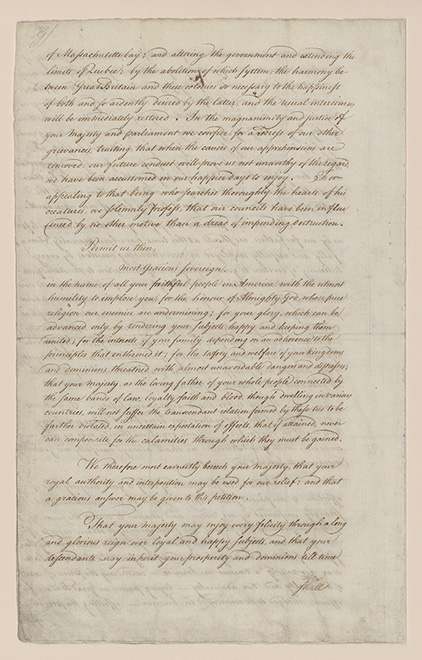 of Massachusetts bay; and altering the government and extending the
limits of Quebec; by the abolition of which system, the harmony be
tween Great Britain and these colonies so necessary to the happiness
of both and so ardently desired by the latter, and the usual intercourses
will be immediately restored. In the magnanimity and justice of
your majesty and parliament we confide, for a redress of our other
grievances, trusting, that when the causes of our apprehensions are
removed, our future conduct will prove us not unworthy of the regard,
we have been accustomed in our happier days to enjoy. For
appealing to that being who searches thoroughly the hearts of his
creatures, we solemnly profess, that our councils have been influ
enced by no other motive than a dread of impending destruction.
Permit us then,
Most Gracious Sovereign,
in the name of all your faithful people in America with the utmost
humility to implore you, for the honour of Almighty God, whose pure
religion our enemies are undermining; for your glory, which can be
advanced only by rendering your subjects happy and keeping them
united; for the interests of your family depending on an adherence to the
principles that enthroned it; for the safety and welfare of your kingdoms
and dominions threatned with almost unavoidable dangers and distresses;
that your majesty, as the loving father of your whole people connected by
the same bands of law, loyalty, faith and blood, though dwelling in various
countries, will not suffer the transcendant relation formed by these ties to be
farther violated, in uncertain expectation of effects, that if attained, never
can compensate for the calamities through which they must be gained.
We therefore most earnestly beseech your majesty, that your
royal authority and interposition may be used for our relief; and that
a gracious answer may be given to this petition.
That your majesty may enjoy every felicity through a long
and glorious reign over loyal and happy subjects, and that your
descendants may inherit your prosperity and dominions till time
shall